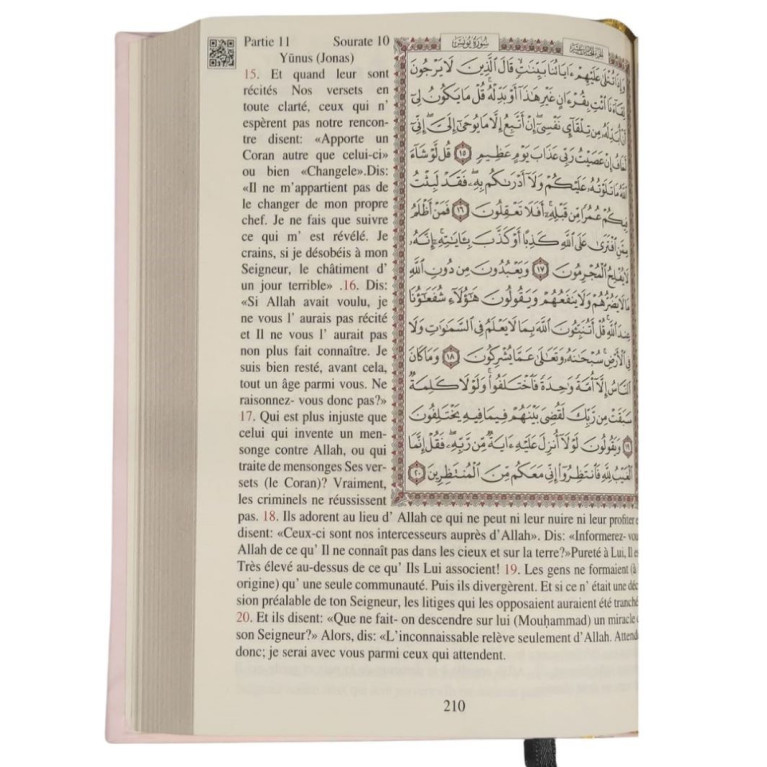 Partie 11 Sourate 10
Yūnus (Jonas)
15. Et quand leur sont
récités Nos versets en
toute clarté, ceux qui n'
espèrent pas notre rencon-
tre disent: «Apporte un
Coran autre que celui-ci»
ou bien «Changele».Dis:
«Il ne m'appartient pas de
le changer de mon propre
chef. Je ne fais que suivre
ce qui m' est révélé. Je
crains, si je désobéis à mon
Seigneur, le châtiment d'
un jour terrible» .16. Dis:
«Si Allah avait voulu, je
ne vous l' aurais pas récité
et Il ne vous l' aurait pas
non plus fait connaître. Je
suis bien resté, avant cela,
tout un âge parmi vous. Ne
raisonnez- vous donc pas?»
17. Qui est plus injuste que
celui qui invente un men-
songe contre Allah, ou qui
traite de mensonges Ses ver-
sets (le Coran)? Vraiment,
les criminels ne réussissent
pas. 18. Ils adorent au lieu d' Allah ce qui ne peut ni leur nuire ni leur profiter e
disent: «Ceux-ci sont nos intercesseurs auprès d'Allah». Dis: «Informerez- vou
Allah de ce qu' Il ne connaît pas dans les cieux et sur la terre?»Pureté à Lui, Il e
Très élevé au-dessus de ce qu' Ils Lui associent! 19. Les gens ne formaient (à
origine) qu' une seule communauté. Puis ils divergèrent. Et si ce n' était une déc
sion préalable de ton Seigneur, les litiges qui les opposaient auraient été tranché
20. Et ils disent: «Que ne fait- on descendre sur lui (Mouḥammad) un miracle d
son Seigneur?» Alors, dis: «L'inconnaissable relève seulement d'Allah. Attend
donc; je serai avec vous parmi ceux qui attendent.
سُورَةُ يُونُسَ
وَإِذَا تُتْلَىٰ عَلَيْهِمْ ءَايَاتُنَا بَيِّنَٰتٍ قَالَ ٱلَّذِينَ لَا يَرْجُونَ
لِقَآءَنَا ٱئْتِ بِقُرْءَانٍ غَيْرِ هَٰذَآ أَوْ بَدِّلْهُ قُلْ مَا يَكُونُ لِىٓ
أَنْ أُبَدِّلَهُۥ مِن تِلْقَآئِ نَفْسِىٓ إِنْ أَتَّبِعُ إِلَّا مَا يُوحَىٰٓ إِلَىَّ إِنِّىٓ
أَخَافُ إِنْ عَصَيْتُ رَبِّى عَذَابَ يَوْمٍ عَظِيمٍ ١٥ قُل لَّوْ شَآءَ
ٱللَّهُ مَا تَلَوْتُهُۥ عَلَيْكُمْ وَلَآ أَدْرَىٰكُم بِهِۦ فَقَدْ لَبِثْتُ
فِيكُمْ عُمُرًا مِّن قَبْلِهِۦٓ أَفَلَا تَعْقِلُونَ ١٦ فَمَنْ أَظْلَمُ
مِمَّنِ ٱفْتَرَىٰ عَلَى ٱللَّهِ كَذِبًا أَوْ كَذَّبَ بِـَٔايَٰتِهِۦٓ إِنَّهُۥ
لَا يُفْلِحُ ٱلْمُجْرِمُونَ ١٧ وَيَعْبُدُونَ مِن دُونِ ٱللَّهِ
مَا لَا يَضُرُّهُمْ وَلَا يَنفَعُهُمْ وَيَقُولُونَ هَٰٓؤُلَآءِ شُفَعَٰٓؤُنَا
عِندَ ٱللَّهِ قُلْ أَتُنَبِّـُٔونَ ٱللَّهَ بِمَا لَا يَعْلَمُ فِى ٱلسَّمَٰوَٰتِ وَلَا
فِى ٱلْأَرْضِ سُبْحَٰنَهُۥ وَتَعَٰلَىٰ عَمَّا يُشْرِكُونَ ١٨ وَمَا كَانَ
ٱلنَّاسُ إِلَّآ أُمَّةً وَٰحِدَةً فَٱخْتَلَفُوا۟ وَلَوْلَا كَلِمَةٌ
سَبَقَتْ مِن رَّبِّكَ لَقُضِىَ بَيْنَهُمْ فِيمَا فِيهِ يَخْتَلِفُونَ
١٩ وَيَقُولُونَ لَوْلَآ أُنزِلَ عَلَيْهِ ءَايَةٌ مِّن رَّبِّهِۦ فَقُلْ إِنَّمَا
ٱلْغَيْبُ لِلَّهِ فَٱنتَظِرُوٓا۟ إِنِّى مَعَكُم مِّنَ ٱلْمُنتَظِرِينَ ٢٠
210